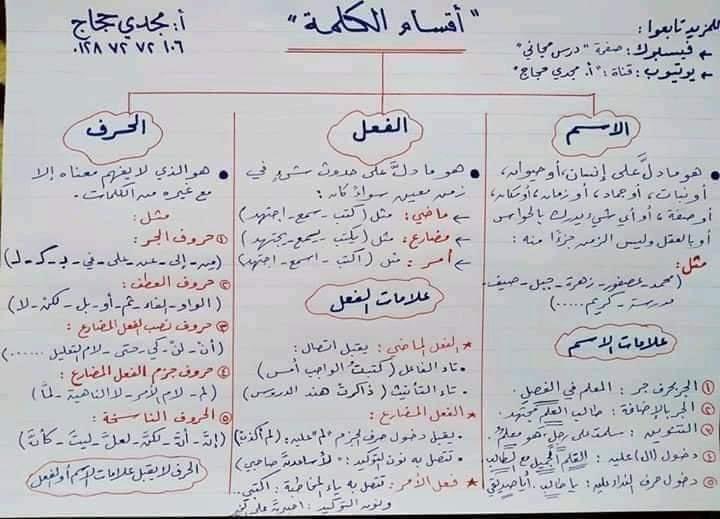 للمزيد تابعوا:
← فيسبوك: صفحة "درس مجاني"
← يوتيوب: قناة: "أ. مجدي حجاج"
"أقسام الكلمة"
أ: مجدي حجاج
٠١٢٨ ٧٢ ٧٢ ١٠٦
الاسم
هو ما دلَّ على إنسان، أو حيوان،
أو نبات، أو جماد، أو زمان، أو مكان،
أو صفة، أو أي شيء يدرك بالحواس
أو بالعقل وليس الزمن جزءًا منه:
مثل:
(محمد - عصفور - زهرة - جبل - صيف -
مدرسة - كريم .....)
علامات الاسم
① الجر بحرف جر: المعلم في الفصل.
② الجر بالإضافة: طالب العلم مجتهد.
③ التنوين: سلمت على رجلٍ هو معلمٌ.
④ دخول (ال) عليه: القلم الجميل مع الطالب
⑤ دخول حرف النداء عليه: يا طالب، أيا صديقي
الفعل
هو ما دلَّ على حدوث شيء في
زمن معين سواءً كان:
← ماضي: مثل (كتب - سمع - اجتهد)
← مضارع: مثل (يكتب - يسمع - يجتهد)
← أمر: مثل (اكتب - اسمع - اجتهد)
علامات الفعل
* الفعل الماضي: يقبل اتصال:
• تاء الفاعل (كتبتُ الواجب أمس)
• تاء التأنيث (ذاكرتْ هند الدروس)
* الفعل المضارع:
• يقبل دخول حرف الجزم "لم" عليه: (لم أكذب)
• تتصل به نون التوكيد: "لأساعدنَّ صاحبي)
* فعل الأمر: تتصل به ياء المخاطبة: اكتبي..
ونون التوكيد:
الحرف
هو الذي لا يفهم معناه إلا
مع غيره من الكلمات.
مثل:
① حروف الجر:
(من - إلى - عن - على - في - بـ - كـ - لـ)
② حروف العطف:
(الواو - الفاء - ثم - أو - بل - لكنْ - لا)
③ حروف نصب الفعل المضارع:
(أنْ - لنْ - كي - حتى - لام التعليل ......)
④ حروف جزم الفعل المضارع:
(لم - لام الأمر - لا الناهية - لمَّا)
⑤ الحروف الناسخة:
(إنَّ - أنَّ - لكنَّ - لعلَّ - ليتَ - كأنَّ)
الحرف لا يقبل علامات الاسم أو الفعل